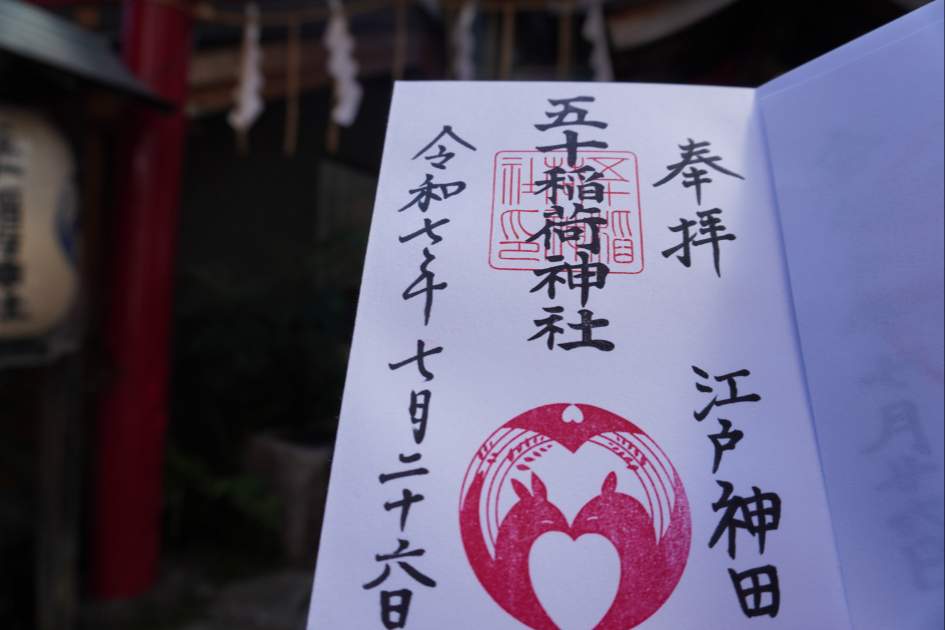 奉拝
江戸神田
五十稲荷神社
令和七年七月二十六日